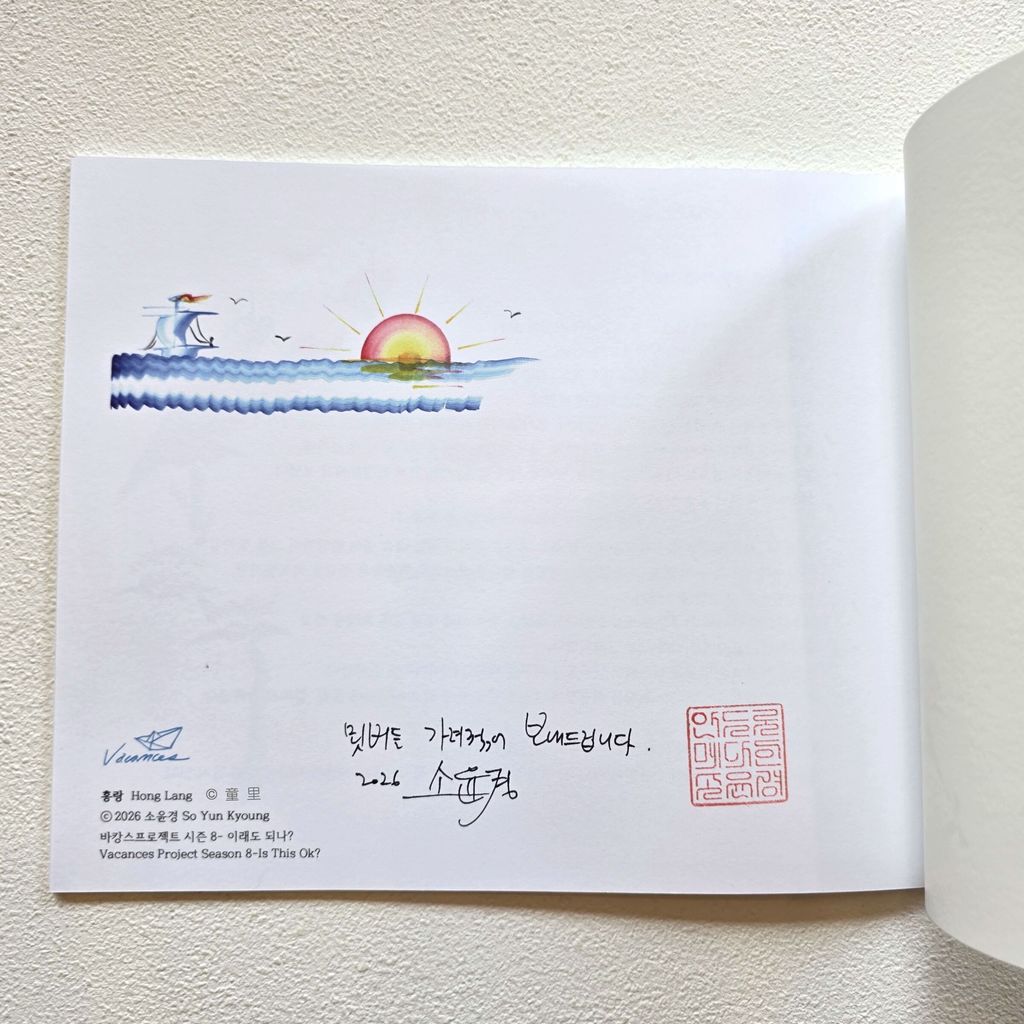 묏버들 가려꺾어 보내드립니다.
2026 소윤경
안드로
메다의
소윤경
Vacances
홍랑 Hong Lang © 童里
© 2026 소윤경 So Yun Kyoung
바캉스프로젝트 시즌 8- 이래도 되나?
Vacances Project Season 8-Is This Ok?